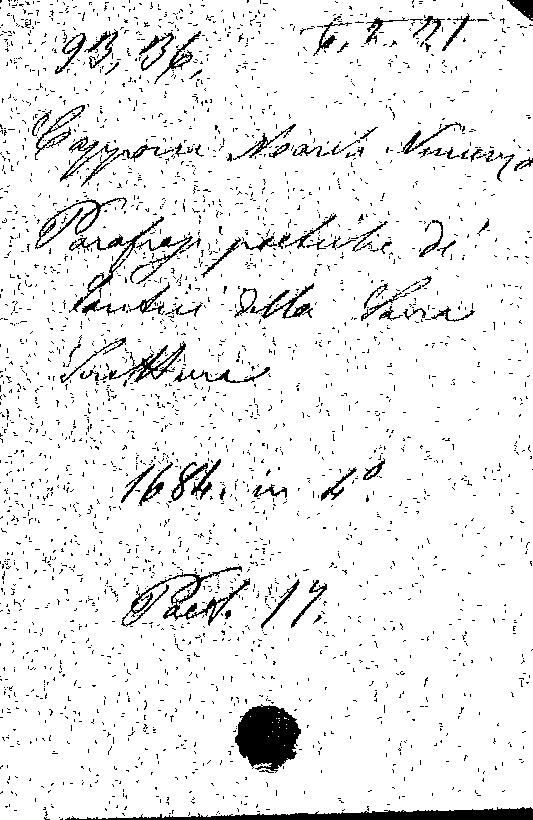 93, B6, 6.2.21
Capponi March. Vincenzo
Parafrasi poetiche de'
Cantici della Sacra
Scrittura
1684. in 4º
Poet. 17.